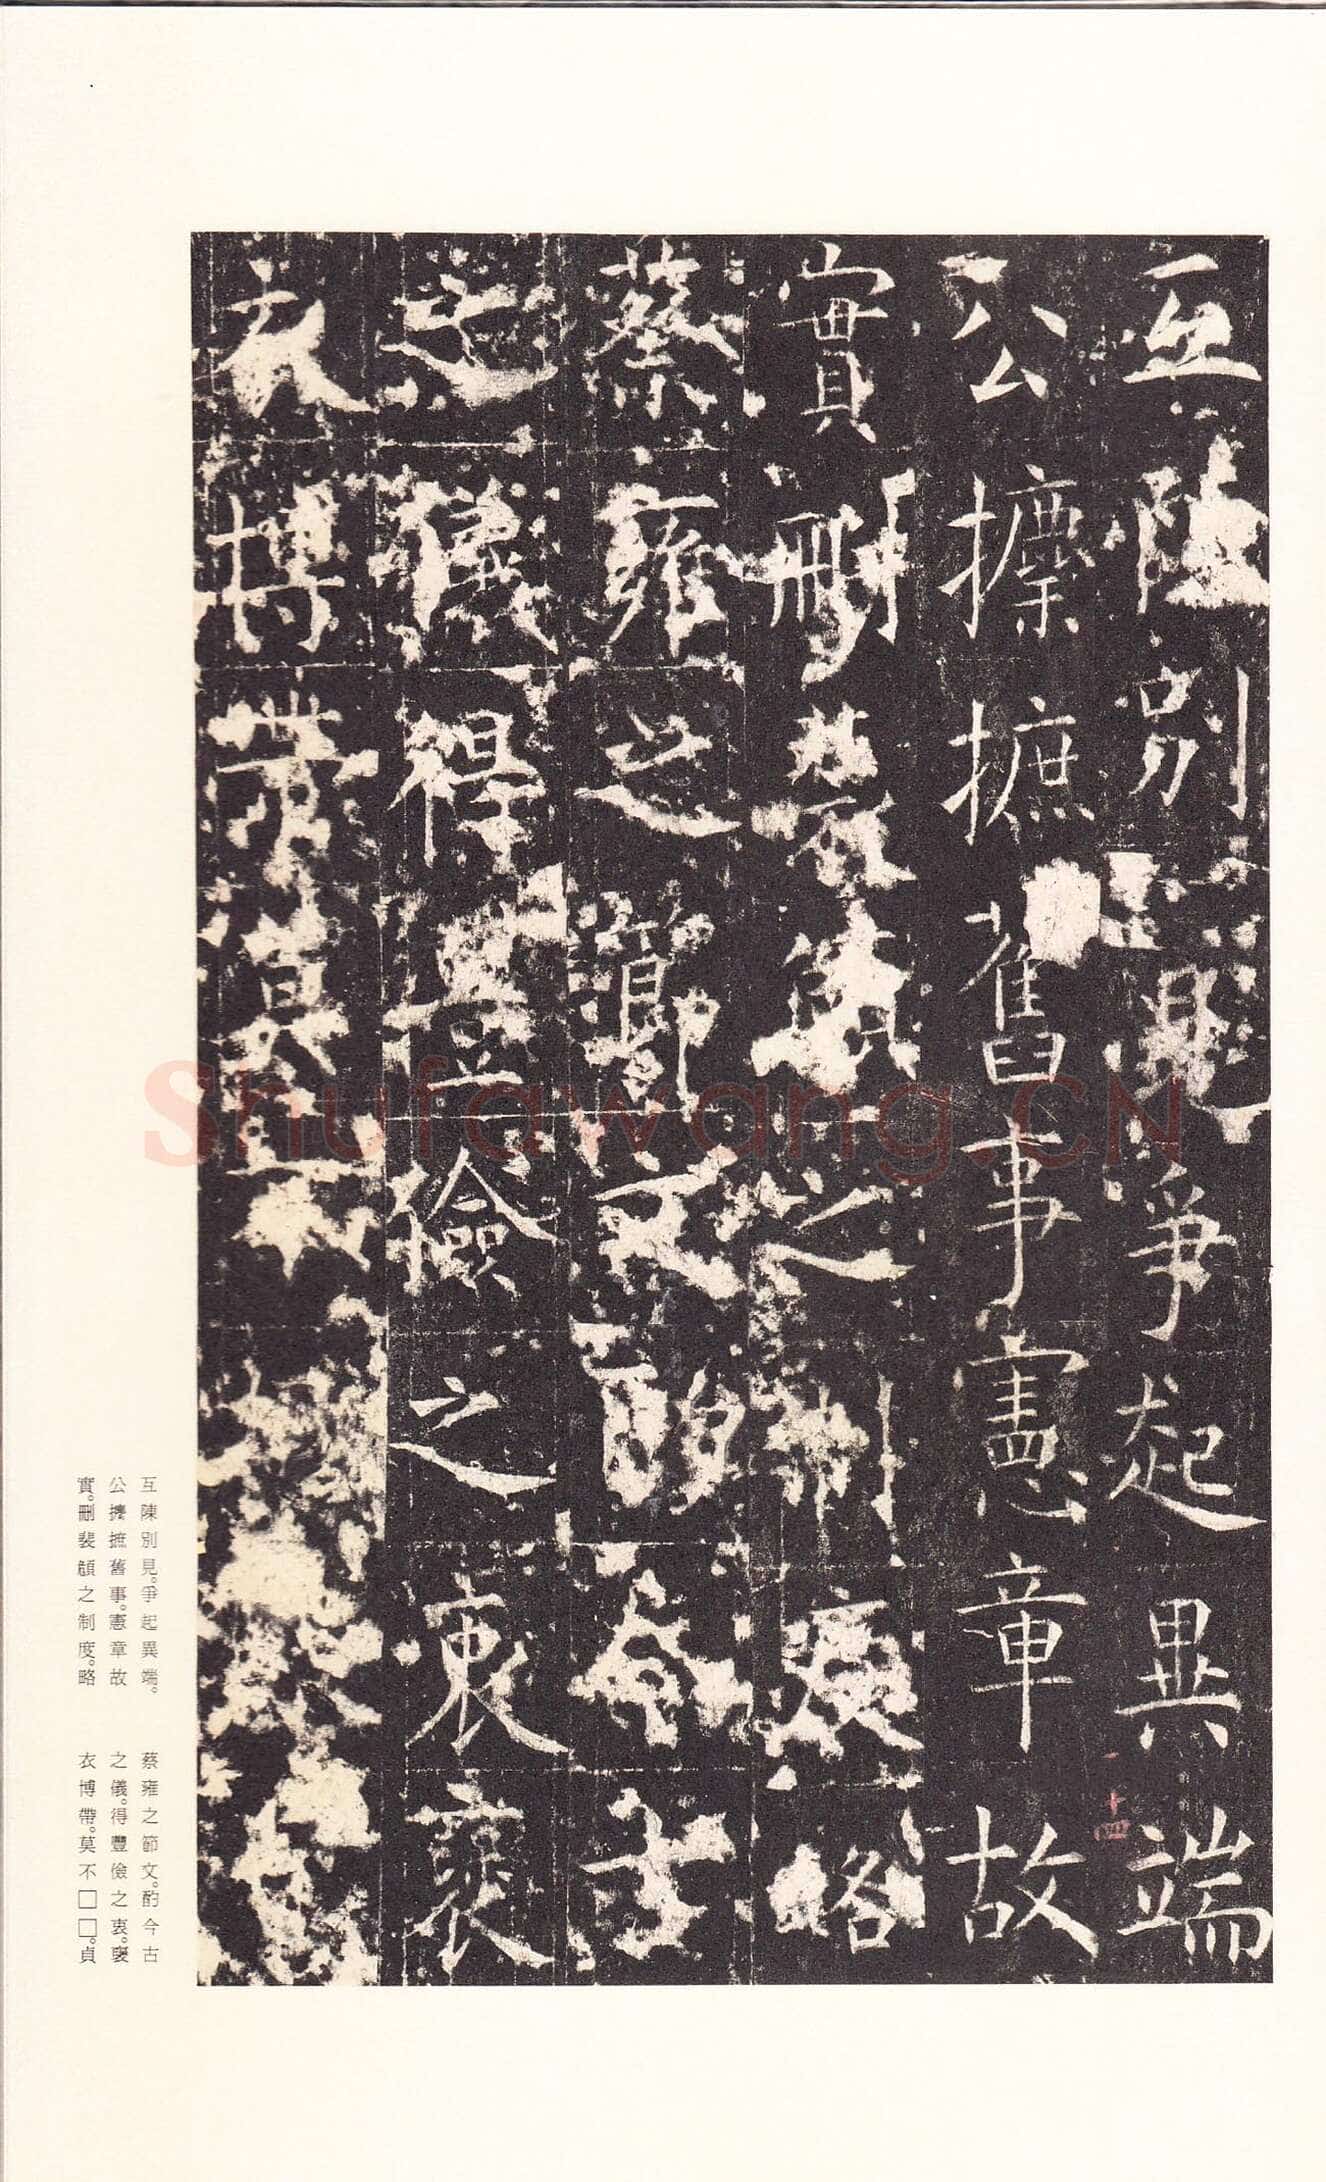 互陳別見爭起異端
公攈摭舊事憲章故
實刪裴頠之制度略
蔡雍之節文酌今古
之儀得豐儉之衷襃
衣博帶莫不
十四
互陳別見。爭起異端。
公攈摭舊事。憲章故
實。刪裴頠之制度。略
蔡雍之節文。酌今古
之儀。得豐儉之衷。襃
衣博帶。莫不□□。貞
Shufawang.CN